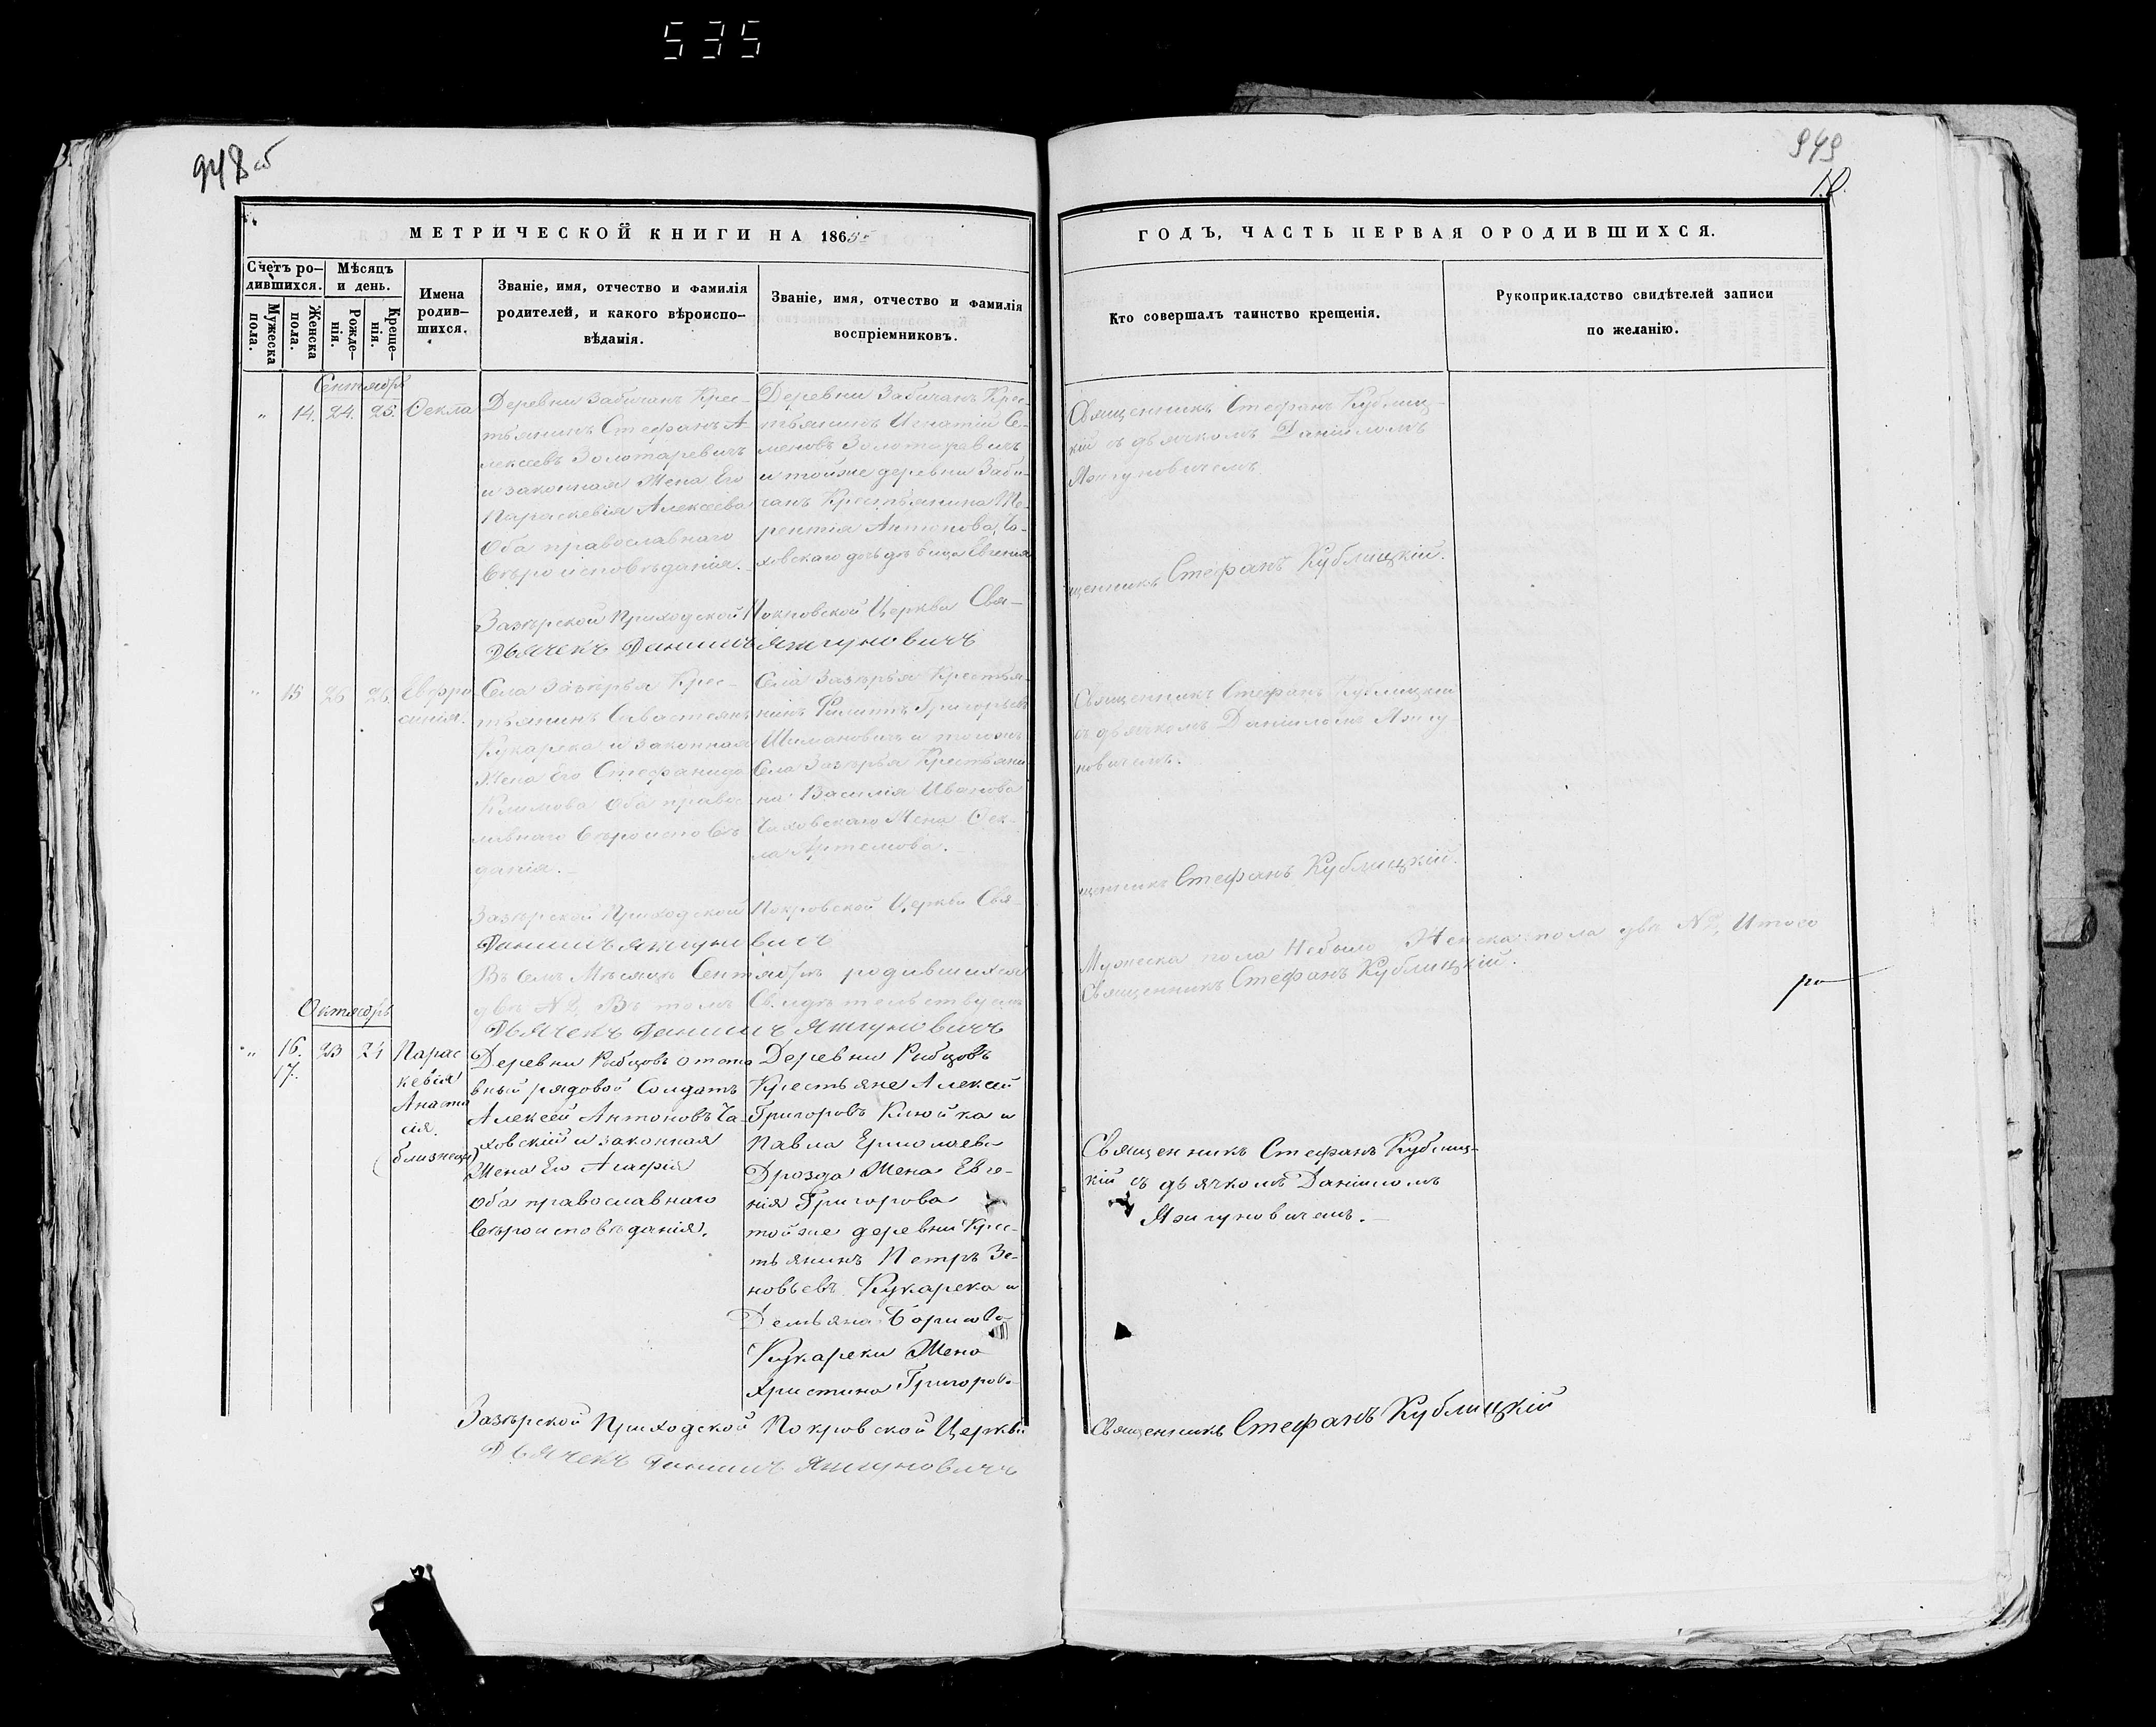 535
948 об
949
10.
МЕТРИЧЕСКОЙ КНИГИ НА 1865
ГОДЪ, ЧАСТЬ ПЕРВАЯ О РОДИВШИХСЯ.
Счетъ ро-
дившихся.
Мужеска
пола.
Женска
пола.
Мѣсяцъ
и день.
Рожде-
нія.
Креще-
нія.
Имена
родив-
шихся.
Званіе, имя, отчество и фамилія
родителей, и какого вѣроиспо-
вѣданія.
Званіе, имя, отчество и фамилія
воспріемниковъ.
Кто совершалъ таинство крещенія.
Рукоприкладство свидѣтелей записи
по желанію.
Сентябрь
" 14. 24. 25. Ѳекла
Деревни Забичанъ Крес-
тьянинъ Стефанъ А
лексеевъ Золотаревичъ
и законная Жена Его
Параскевія Алексеева
Оба православнаго
вѣроисповѣданія.
Деревни Забичанъ Крес-
тьянинъ Игнатій Се-
меновъ Золотаревичъ
и тойже деревни Заби-
чанъ Крестьянина Те-
рентія Антонова Ча-
ховскаго дочь девица Евгенія
Священникъ Стефанъ Кублиц-
кій съ дьячкомъ Даніиломъ
Яжгуновичемъ.
Зазерской Приходской Покровской Церкви Свя-
щенникъ Стефанъ Кублицкій.
Дьячекъ Даниилъ Яжгуновичъ
" 15 25 26. Евфро
синія.
Села Зазерья Крес-
тьянинъ Севастеянъ
Кукарека и законная
Жена Его Стефанида
Климова Оба правос
лавнаго вѣроисповѣ
данія.
Села Зазерья Крестья-
нинъ Филиппъ Григорьевъ
Шимановичъ и тогожъ
Села Зазерья Крестьяни
на Василія Иванова
Чаховскаго Жена Ѳек-
ла Артемова.
Священникъ Стефанъ Кублицкій
съ дьячкомъ Даніиломъ Яжгу
новичемъ.
Зазерской Приходской Покровской Церкви Свя-
щенникъ Стефанъ Кублицкій.
Даниилъ Яжгуновичъ
Въ Семъ Мѣсяцѣ Сентябрѣ родившихся
Мужеска пола Небыло Женска пола два №2, Итого
два №2, Въ томъ Свидѣтельствуемъ
Священникъ Стефанъ Кублицкій.
Дьячекъ Даниилъ Яжгуновичъ
Октябрь
" 16. 23 24 Парас
17.
кевія
Анаста
сія.
(близнецы)
Деревни Рыбцовъ отста
вный рядовой Солдатъ
Алексей Антоновъ Ча-
ховскій и законная
Жена Его Агафія
Оба православнаго
вѣроисповѣданія.
Деревни Рыбцовъ
Крестьяне Алексей
Григоровъ Клюйка и
Павла Ермолаева
Дрозда Жена Евге-
нія Григорова
тойже деревни Крес-
тьянинъ Петръ Зе-
новьевъ Кукарека и
Демьяна Борисова
Кукареки Жена
Христина Григорова
Священникъ Стефанъ Кублиц-
кій съ дьячкомъ Даніиломъ
Яжгуновичемъ.
Зазерской Приходской Покровской Церкви
Священникъ Стефанъ Кублицкій
Дьячекъ Даниилъ Яжгуновичъ